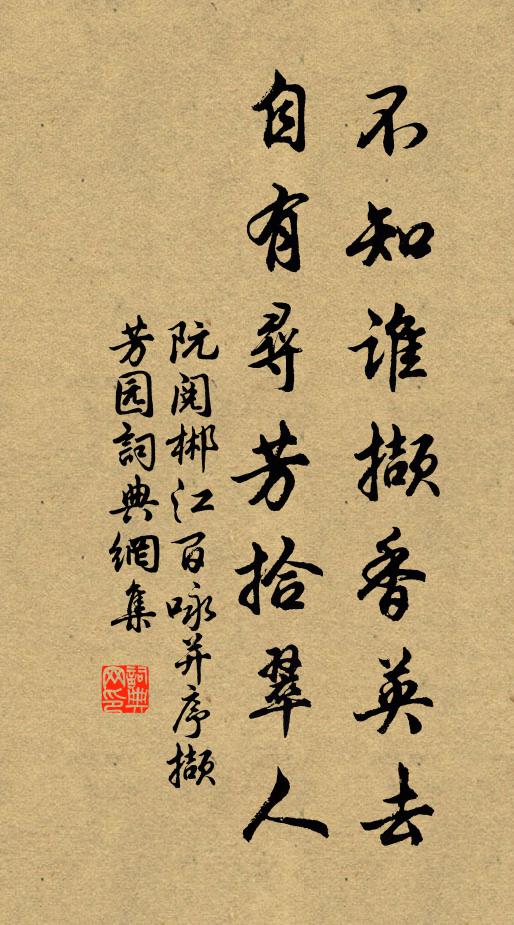 不知誰擷香英去
自有尋芳拾翠人
阮閱郴江百咏并序擷
芳园詞典網集
詞典
网印